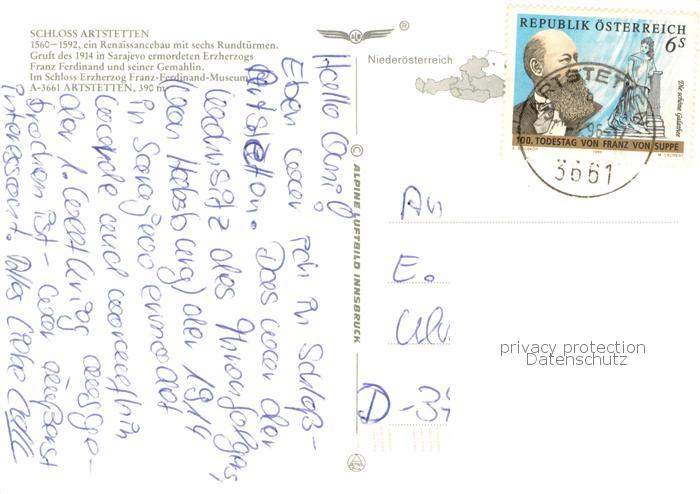 SCHLOSS ARTSTETTEN
1560—1592, ein Renaissancebau mit sechs Rundtürmen.
Gruft des 1914 in Sarajevo ermordeten Erzherzogs
Franz Ferdinand und seiner Gemahlin.
Im Schloss Erzherzog Franz-Ferdinand-Museum
A-3661 ARTSTETTEN, 390 m
Hallo
Eben war ich in Schloß-
Artstetten. Das war der
Wohnsitz des Thronfolgers,
(von Habsburg) der 1914
in Sarajevo ermordet
wurde und woraufhin
der 1. Weltkrieg ausge-
brochen ist – war äußerst
interessant. Alles Liebe
© ALPINE LUFTBILD INNSBRUCK
ALM
®
Niederösterreich
REPUBLIK ÖSTERREICH
6 S
Die schöne Galathee
100. TODESTAG VON FRANZ VON SUPPÉ
ARTSTETTEN
3661
An
E.
D-
privacy protection
Datenschutz